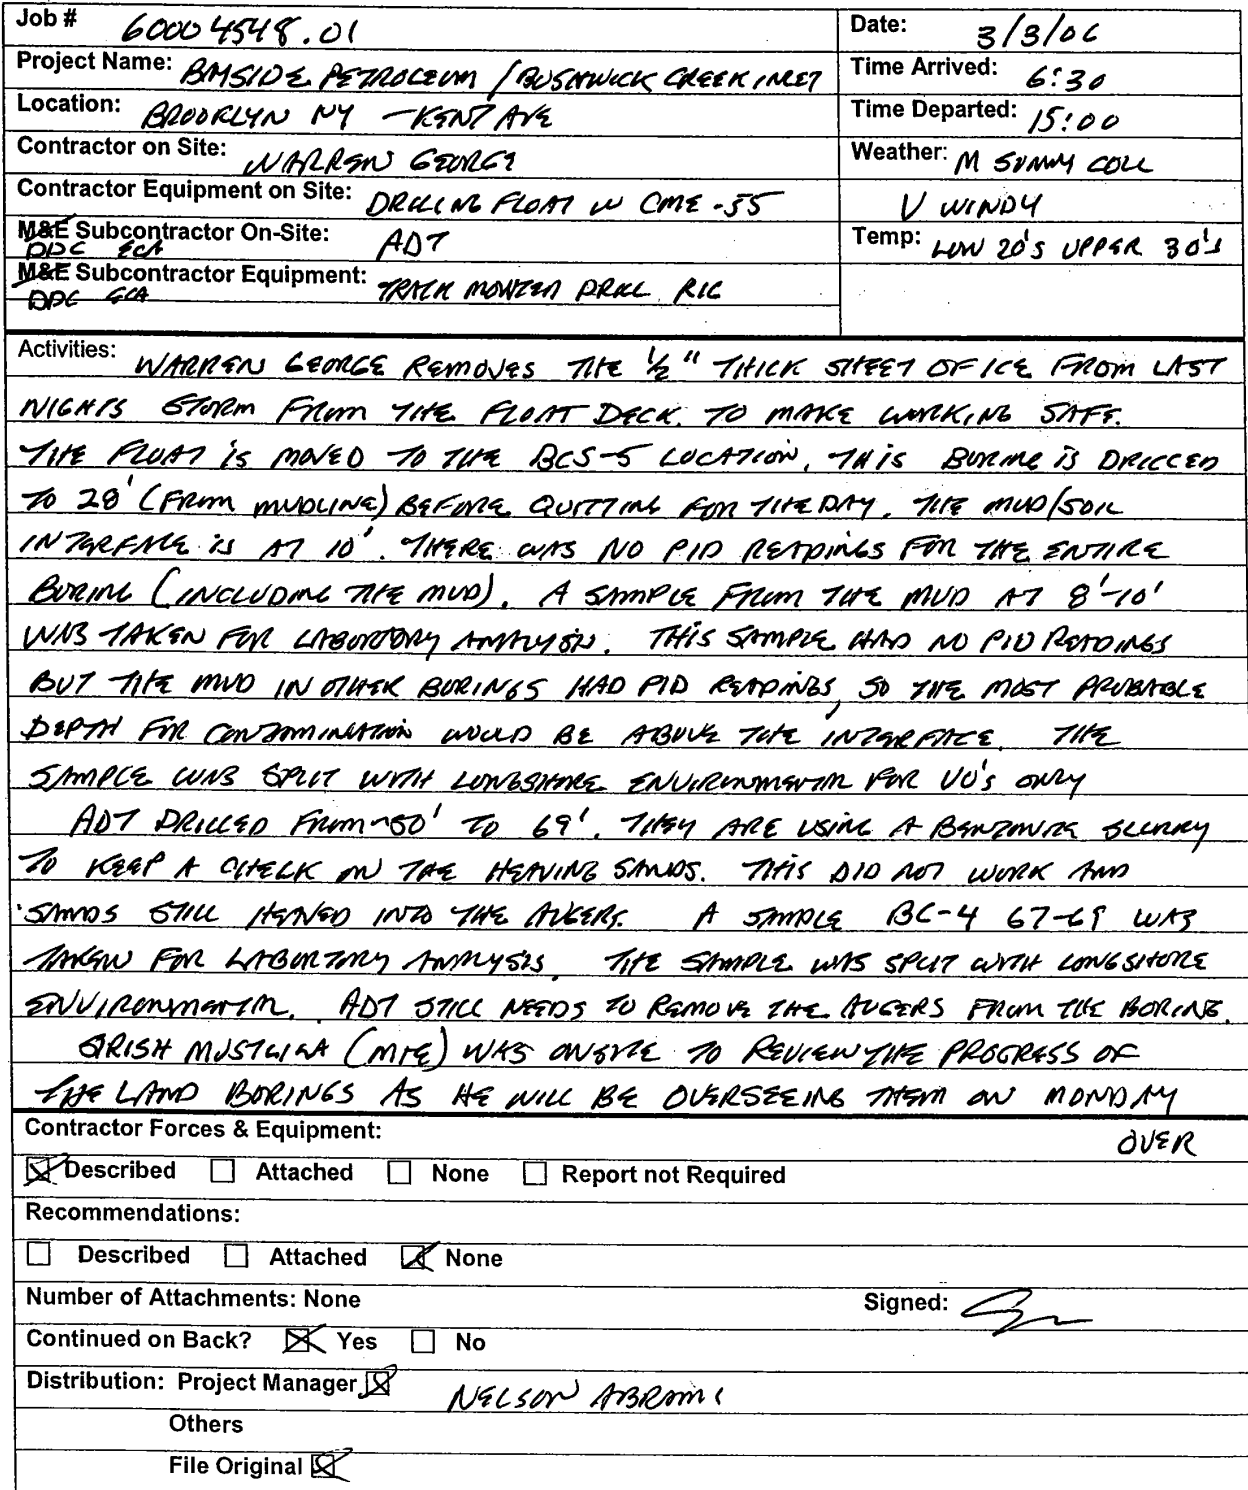 Job # 60004548.01
Date: 3/3/06
Project Name: BAYSIDE PETROLEUM / BUSHWICK CREEK INLET
Time Arrived: 6:30
Location: BROOKLYN NY - KENT AVE
Time Departed: 15:00
Contractor on Site: WARREN GEORGE
Weather: M SUNNY COLL
V WINDY
Contractor Equipment on Site: DRILLING FLOAT W CME-55
M&E Subcontractor On-Site: ADT
DDC
Temp: LOW 20's UPPER 30's
M&E Subcontractor Equipment: TRACK MOUNTED DRILL RIG
DDC
Activities: WARREN GEORGE REMOVES THE 1/2" THICK SHEET OF ICE FROM LAST
NIGHTS STORM FROM THE FLOAT DECK. TO MAKE WORKING SAFE.
THE FLOAT IS MOVED TO THE BCS-5 LOCATION. THIS BORING IS DRILLED
TO 28' (FROM MUDLINE) BEFORE QUITTING FOR THE DAY. THE MUD/SOIL
INTERFACE IS AT 10'. THERE WAS NO PID READINGS FOR THE ENTIRE
BORING (INCLUDING THE MUD). A SAMPLE FROM THE MUD AT 8'-10'
WAS TAKEN FOR LABORTORY ANALYSIS. THIS SAMPLE HAD NO PID READINGS
BUT THE MUD IN OTHER BORINGS HAD PID READINGS, SO THE MOST PROBABLE
DEPTH FOR CONTAMINATION WOULD BE ABOVE THE INTERFACE. THE
SAMPLE WAS SPLIT WITH LONGSHORE ENVIRONMENTAL FOR VO's ONLY
ADT DRILLED FROM ~50' TO 69'. THEY ARE USING A BENTONITE SLURRY
TO KEEP A CHECK ON THE HEAVING SANDS. THIS DID NOT WORK AND
SANDS STILL HEAVED INTO THE AUGERS. A SAMPLE BC-4 67-69 WAS
TAKEN FOR LABORTORY ANALYSIS. THE SAMPLE WAS SPLIT WITH LONGSHORE
ENVIRONMENTAL. ADT STILL NEEDS TO REMOVE THE AUGERS FROM THE BORING.
GRISH (M+E) WAS ONSITE TO REVIEW THE PROGRESS OF
THE LAND BORINGS AS HE WILL BE OVERSEEING THEM ON MONDAY
OVER
Contractor Forces & Equipment:
Described Attached None Report not Required
Recommendations:
Described Attached None
Number of Attachments: None Signed:
Continued on Back? Yes No
Distribution: Project Manager NELSON ABRAMS
Others
File Original